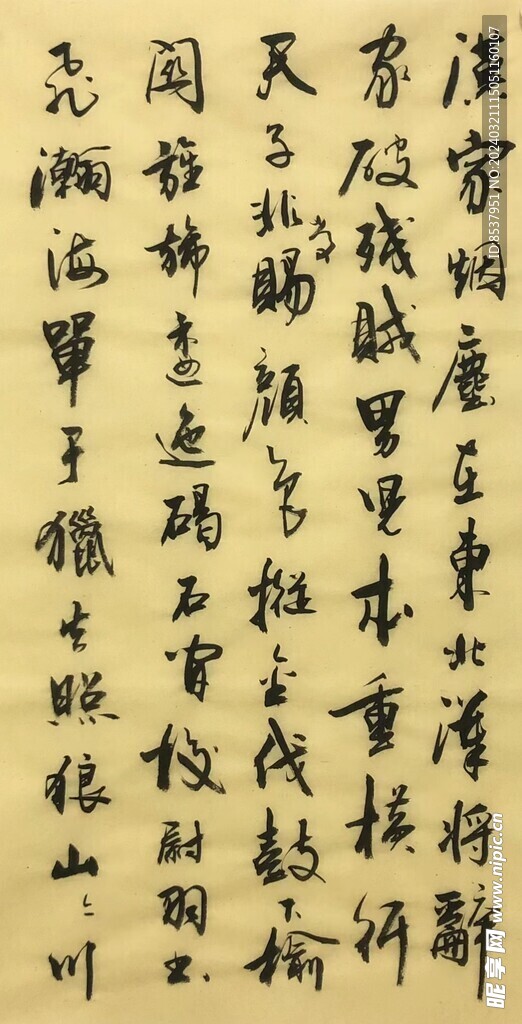 漢家烟塵在東北漢將辭
家破残賊男兒本重橫行
天子非常賜顏色摐金伐鼓下榆
關旌旆逶迤碣石間校尉羽書
飛瀚海單于獵火照狼山々川
ID:8537951 NO:20240321115051160107
昵享网 www.nipic.cn